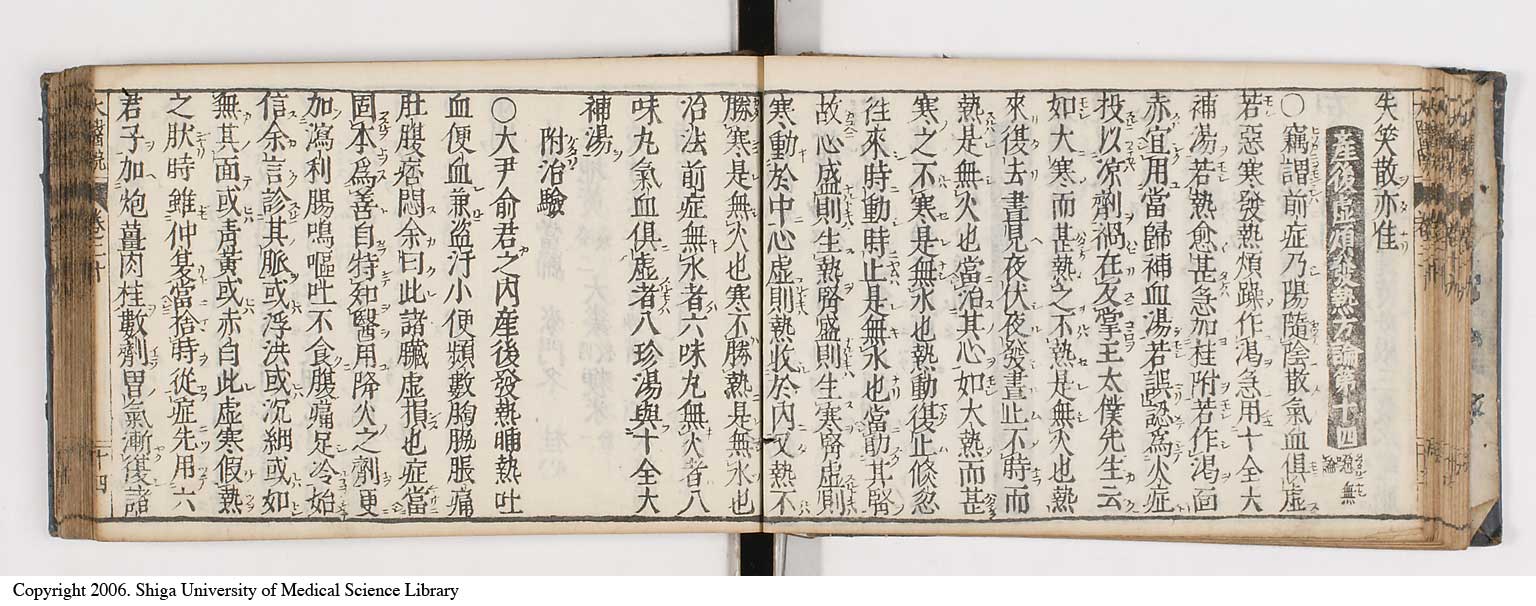 失笑散亦佳
産後虚煩發熱方論第十四
○竊謂前症乃陽隨陰散氣血俱虛
若惡寒發熱煩躁作渴急用十全大
補湯若熱愈甚急加桂附若作渴面
赤宜用當歸補血湯若誤認為火症
投以凉劑禍在反掌王太僕先生云
如大寒而甚熱之不熱是無火也熱
來復去晝見夜伏夜發晝止不時而
熱是無火也當治其心如大熱而甚
寒之不寒是無水也熱動復止倏忽
往來時動時止是無水也當助其腎
故心盛則生熱腎盛則生寒腎虛則
寒動於中心虛則熱收於内又熱不
勝寒是無火也寒不勝熱是無水也
治法前症無水者六味丸無火者八
味丸氣血俱虛者八珍湯與十全大
補湯
附治驗
○大尹俞君之内產後發熱晡熱吐
血便血兼盜汗小便頻數胸脇脹痛
肚腹痞悶余曰此諸臟虛損也症當
固本為善自恃知醫用降火之劑更
加瀉利腸鳴嘔吐不食腹痛足冷始
信余言診其脈或浮洪或沉細或如
無其面或青黃或赤白此虛寒假熱
之狀時雖仲夏當捨時從症先用六
君子加炮薑肉桂數劑胃氣漸復諸
卷二十
二十四
Copyright 2006. Shiga University of Medical Science Library